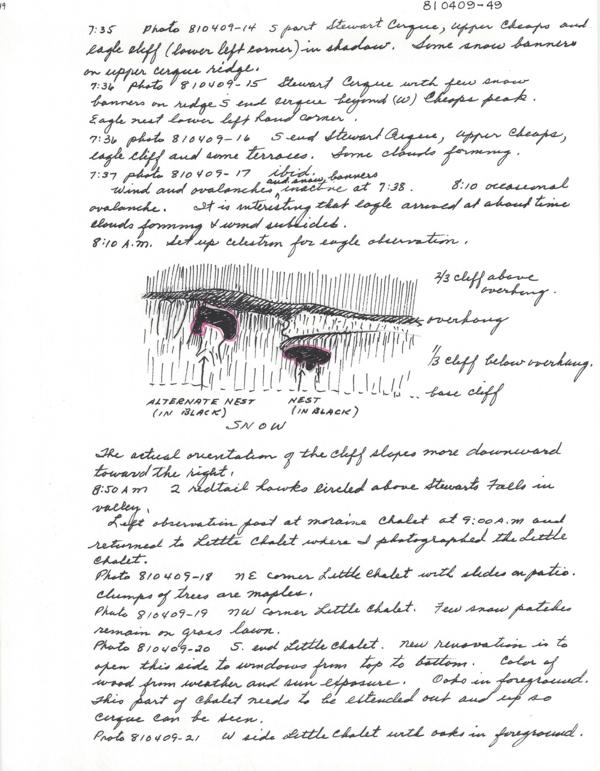 19
810409-49
7:35 Photo 810409-14 S part Stewart Cirque, upper Cheops and
eagle cliff (lower left corner) in shadow. Some snow banners
on upper cirque ridge.
7:36 photo 810409-15 Stewart Cirque with few snow
banners on ridge S end cirque beyond (W) Cheops peak.
Eagle nest lower left hand corner.
7:36 photo 810409-16 S end Stewart Cirque, upper Cheops,
eagle cliff and some terraces. Some clouds forming.
7:37 photo 810409-17 ibid.
Wind and avalanches and snow banners inactive at 7:38. 8:10 occasional
avalanche. It is interesting that eagle arrived at about time
clouds forming & wind subsided.
8:10 A.M. Set up celestron for eagle observation.
2/3 cliff above
overhang.
overhang
1/3 cliff below overhang.
base cliff
ALTERNATE NEST
(IN BLACK)
NEST
(IN BLACK)
SNOW
The actual orientation of the cliff slopes more downward
toward the right.
8:50 AM 2 redtail hawks circled above Stewarts Falls in
valley.
Left observation post at moraine Chalet at 9:00 A.M and
returned to Little Chalet where I photographed the Little
Chalet.
Photo 810409-18 NE corner Little Chalet with slides on patio.
Clumps of trees are maples.
Photo 810409-19 NW corner Little Chalet. Few snow patches
remain on grass lawn.
Photo 810409-20 S. end Little Chalet. New renovation is to
open this side to windows from top to bottom. Color of
wood from weather and sun exposure. Oaks in foreground.
This part of Chalet needs to be extended out and up so
cirque can be seen.
Photo 810409-21 W side Little Chalet with oaks in foreground.